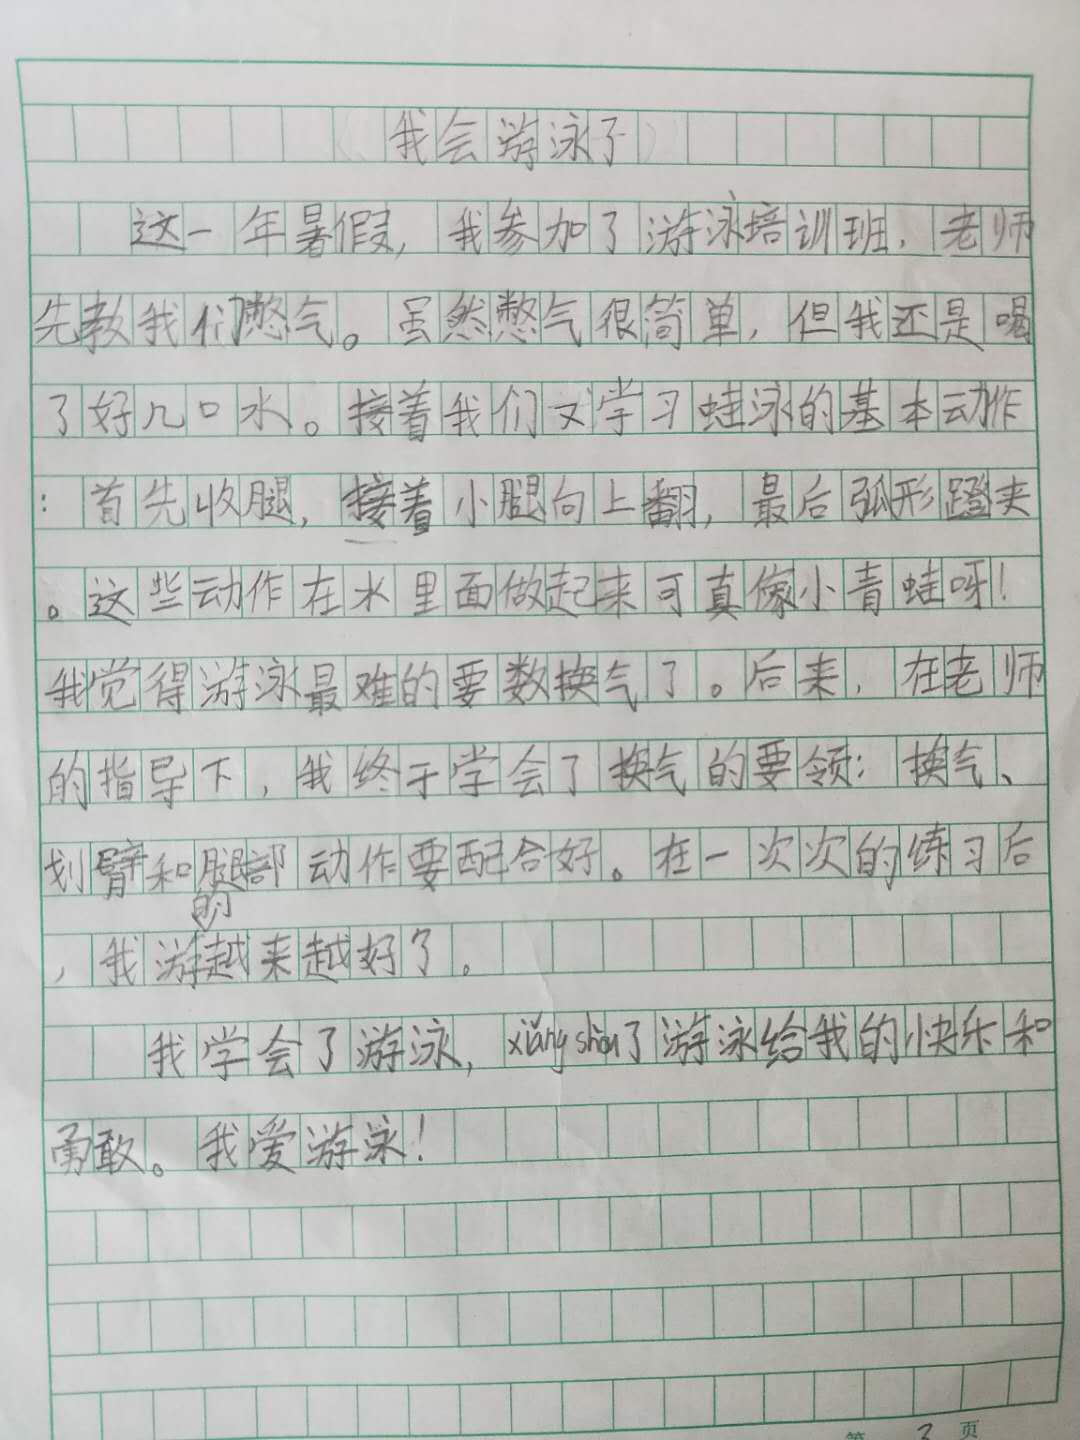 我会游泳了
这一年暑假，我参加了游泳培训班，老师
先教我们憋气。虽然憋气很简单，但我还是喝
了好几口水。接着我们又学习蛙泳的基本动作
：首先收腿，接着小腿向上翻，最后弧形蹬夹
。这些动作在水里面做起来可真像小青蛙呀！
我觉得游泳最难的要数换气了。后来，在老师
的指导下，我终于学会了换气的要领：换气、
划臂和腿部动作要配合好。在一次次的练习后
，我游的越来越好了。
我学会了游泳，xiǎng shòu了游泳给我的快乐和
勇敢。我爱游泳！
第 3 页